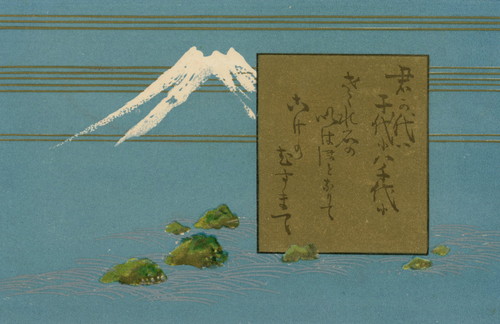 君か代ハ
千代に八千代に
さゝれ石の
いはほとなりて
こけの
むすまて